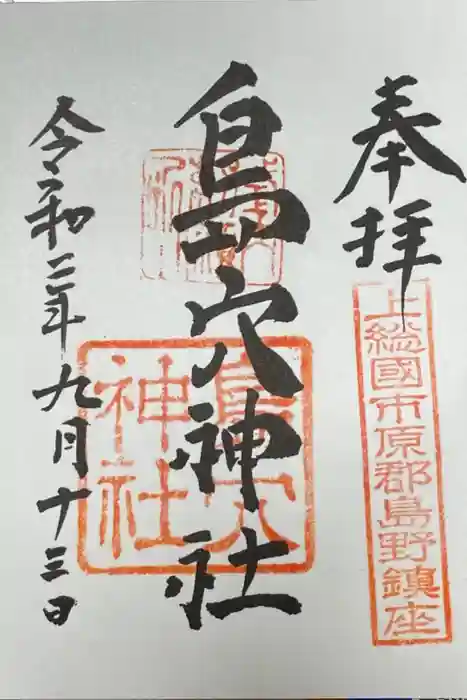 奉拝
上総國市原郡島野鎮座
島穴神社
島穴
神社
令和三年九月十三日